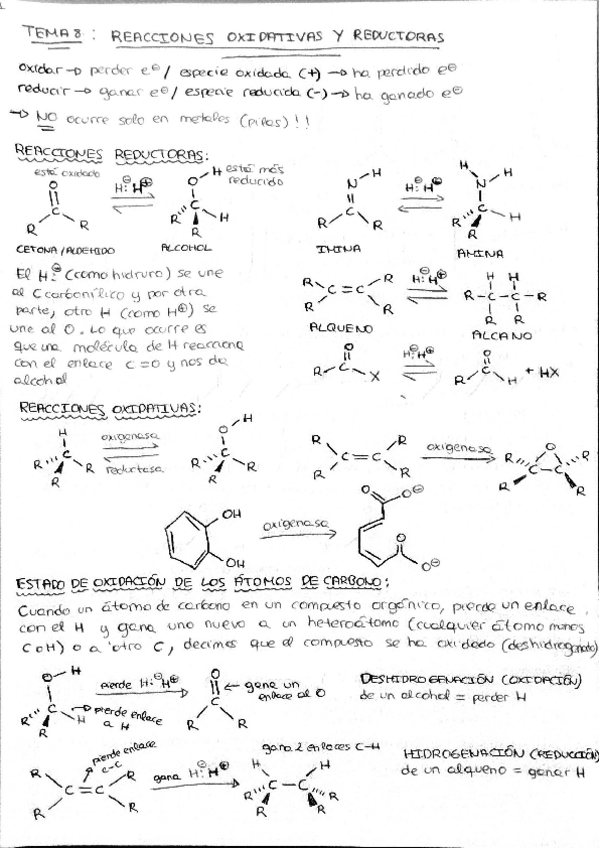 TEMA 8: REACCIONES OXIDATIVAS Y REDUCTORAS
oxidar → perder e⊖ / especie oxidada (+) → ha perdido e⊖
reducir → ganar e⊖ / especie reducida (-) → ha ganado e⊖
→ NO ocurre solo en metales (pilas)!!
REACCIONES REDUCTORAS:
está oxidado
está más reducido
O
R R
H:⊖ H⊕
O H
R C H
R
N H
C
R R
H:⊖ H⊕
H N H
R C H
R
CETONA/ALDEHIDO
ALCOHOL
IMINA
AMINA
El H:⊖ (como hidruro) se une
al C carbonílico y por otra
parte, otro H (como H⊕) se
une al O. Lo que ocurre es
que una molécula de H reacciona
con el enlace C=O y nos da
alcohol
R R
C=C
R R
H:⊖ H⊕
H H
R-C-C-R
R R
ALQUENO
ALCANO
O
R C X
H:⊖ H⊕
O
R C H
+ HX
REACCIONES OXIDATIVAS:
H
R C R
R
oxigenasa
reductasa
O H
R C R
R
R R
C=C
R R
oxigenasa
O
R C C R
R R
OH
OH
oxigenasa
O O⊖
O
O⊖
ESTADO DE OXIDACIÓN DE LOS ÁTOMOS DE CARBONO:
Cuando un átomo de carbono en un compuesto orgánico, pierde un enlace
con el H y gana uno nuevo a un heteroátomo (cualquier átomo menos
C o H) o a otro C, decimos que el compuesto se ha oxidado (deshidrogenado)
O H
R C H
R
pierde enlace a H
pierde H:⊖ H⊕
O
C
R R
gana un enlace al O
DESHIDROGENACIÓN (OXIDACIÓN)
de un alcohol = perder H
pierde enlace C-C
R R
C=C
R R
gana H:⊖ H⊕
gana 2 enlaces C-H
H H
R C-C R
R R
HIDROGENACIÓN (REDUCCIÓN)
de un alqueno = ganar H